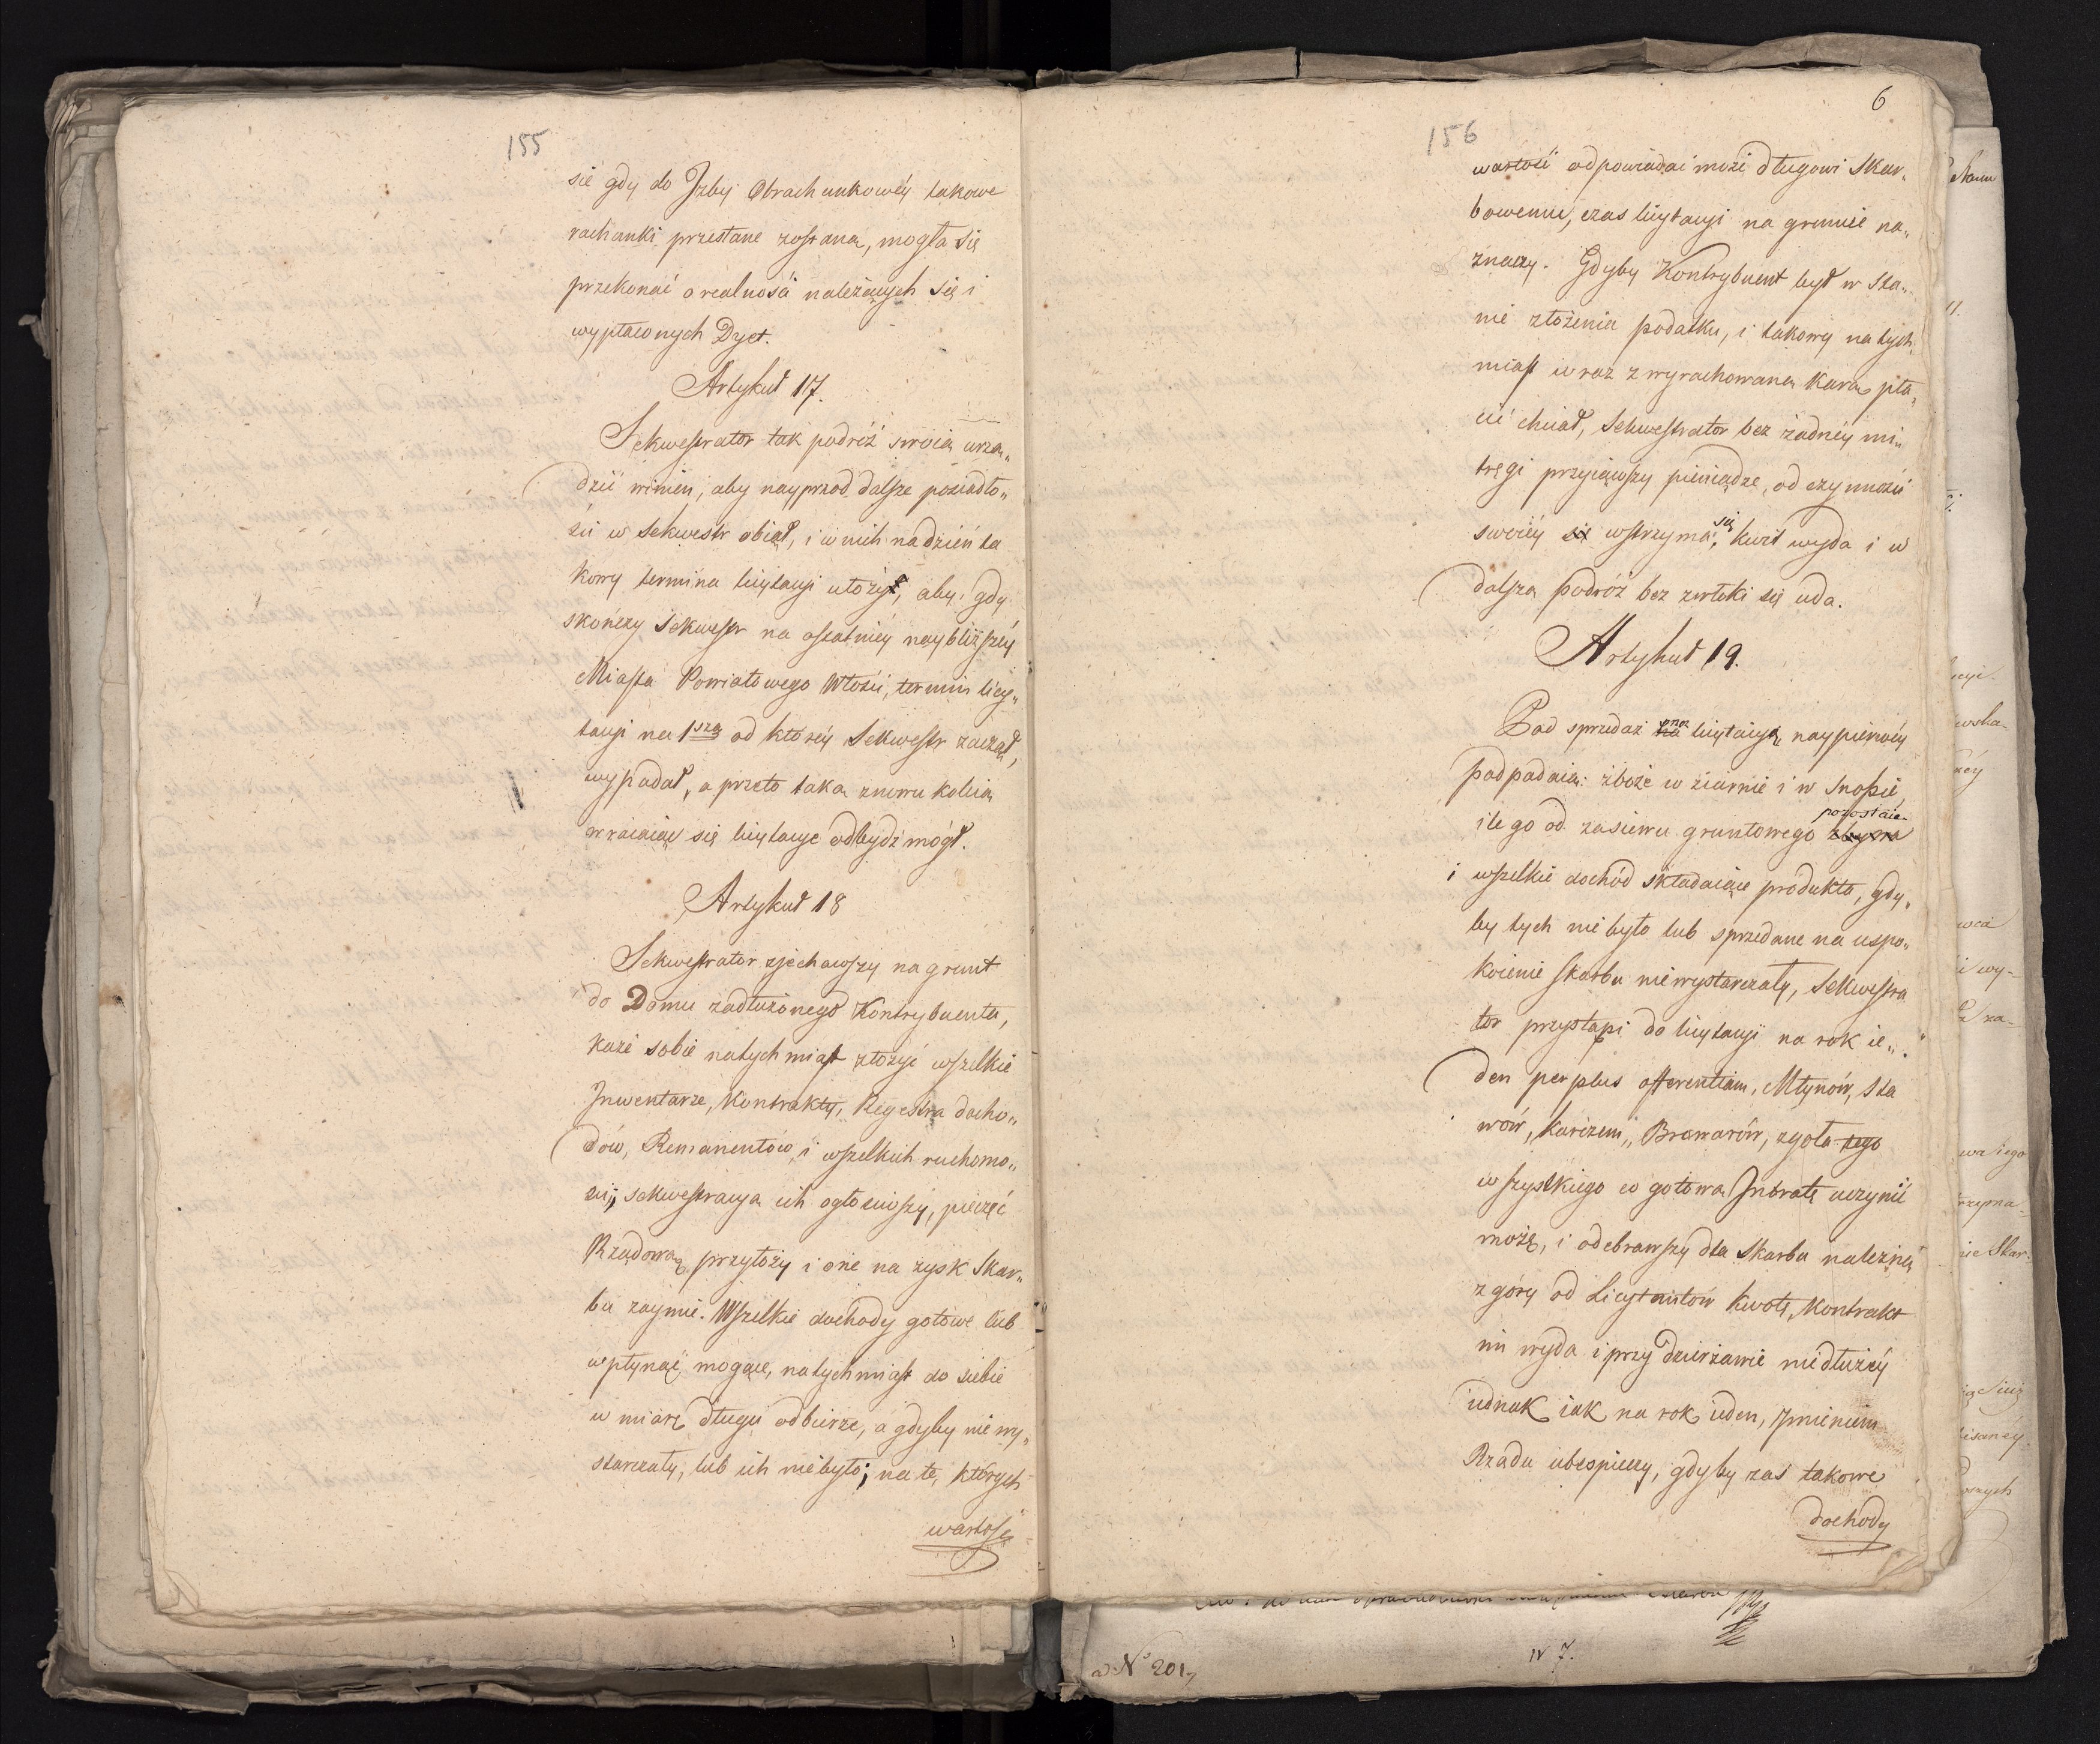 155
się gdy do Jzby Obrachunkowéy takowe
rachunki przesłane zostaną, mogła się
przekonać o realności należących się i
wypłaconych Dyet.
Artykuł 17.
Sekwestrator tak podróż swoią urzą„
dzić winien, aby nayprzod dalsze posiadło„
ści w Sekwestr obiął, i w nich na dzień ta
kowy termina licytacyi ułożył, aby gdy
skończy Sekwestr na ostatniéy naybliższéy
Miasta Powiatowego Włości, termin licy„
tacyi na 1szą od któréy Sekwestr zaczął,
wypadał, a przeto taką znowu koleią
wracaiąc się licytacye odbydź mógł.
Artykuł 18
Sekwestrator zjechawszy na grunt
do Domu zadłużonego Kontrybuenta,
każe sobie natychmiast złożyć wszelkie
Jnwentarze, Kontrakty, Regestra docho„
dów, Remanentów i wszelkich ruchomo„
ści, sekwestracyą ich ogłosiwszy, pieczęć
Rządową przyłoży i one na zysk Skar„
bu zaymie. Wszelkie dochody gotowe lub
wpłynąć mogące, natychmiast do siebie
w miarę długu odbierze, a gdyby nie wy„
starczały, lub ich nie było; na te, których
wartość
6
156
wartość odpowiadać może długowi Skar„
bowemu, czas licytacyi na gruncie na„
znaczy. Gdyby Kontrybuent był w sta„
nie złożenia podatku, i takowy natych„
miast wraz z wyrachowaną karą pła„
cić chciał, Sekwestrator bez żadnéy mi„
tręgi przyiąwszy pieniądze, od czynności
swoiéy się wstrzyma się, kwit wyda i w
dalszą podróż bez zwłoki się uda.
Artykuł 19.
Pod sprzedaż na licytacyą naypierwéy
podpadaią: zboże w ziarnie i w Snopie
ile go od zasiewu gruntowego zbywa pozostaie
i wszelkie dochód składaiące produkta, gdy„
by tych nie było lub sprzedane na uspo„
koienie skarbu niewystarczały, Sekwestra
tor przystąpi do licytacyi na rok ie„
den per plus offerentiam, Młynów, Sta
wów, Karczem, Browarów, zgoła tego
wszystkiego co gotową Jntratę uczynić
może, i odebrawszy dla Skarbu należną
z góry od Licytantów kwotę, Kontrakt
im wyda i przy dzierżawie niedłużéy
iednak iak na rok ieden, Jmieniem
Rządu ubespieczy, gdyby zaś takowe
dochody
N° 201
7.